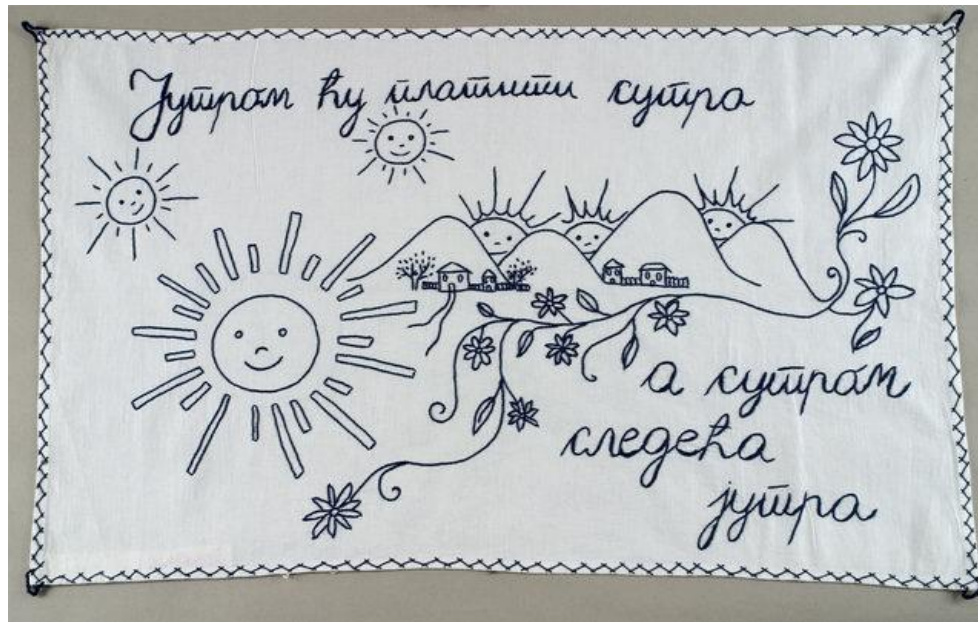 Јутром ћу платити сутра
а сутром
следећа
јутра